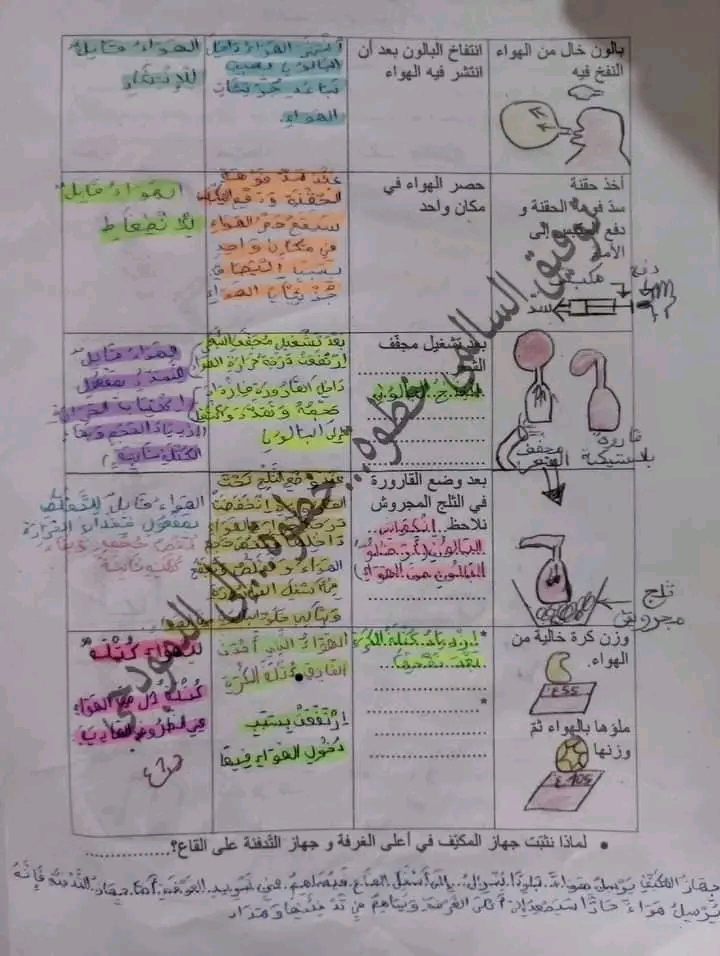 بالون خال من الهواء
النفخ فيه
انتفاخ البالون بعد أن
انتشر فيه الهواء
انتشر الهواء داخل
البالون بسبب
تباعد جزيئات
الهواء.
الهواء قابل
للانتشار
أخذ حقنة
سد فوهة الحقنة و
دفع المكبس إلى
الأمام
مكبس
دفع
سدّ
حصر الهواء في
مكان واحد
عند سد فوهة
الحقنة ودفع المكبس
حجم الهواء
في مكان واحد
بسبب
جزيئات الهواء
الهواء قابل
للانضغاط
قارورة
بلاستيكية
مجفف
الشعر
بعد تشغيل مجفّف
الشعر
انتفخ البالون
بعد تشغيل مجفف الشعر
ارتفعت درجة حرارة الهواء
داخل القارورة
حجمه وتمدد وانتقل
إلى البالون
الهواء قابل
للتمدد بمفعول
اكتساب الحرارة
ازدياد الحجم وبقاء
الكتلة ثابتة
بعد وضع القارورة
في الثلج المجروش
نلاحظ انكماش
البالون
البالون من الهواء
عند وضع الثلج تحت
القارورة انخفضت
درجة حرارة الهواء
داخلها
الهواء وتقلص
أسفل القارورة
الهواء قابل للتقلص
بمفعول فقدان الحرارة
نقص حجمه وبقاء
كتلته ثابتة
ثلج
مجروش
وزن كرة خالية من
الهواء.
ملؤها بالهواء ثمّ
وزنها
* ازدياد كتلة الكرة
بعد نفخها
*
الهواء الذي أحدث
الفارق كتلة الكرة
ارتفعت بسبب
دخول الهواء فيها
للهواء كتلة
كتلة كل من الهواء
في الظروف العادية
توفيق السالمي خطوة... خطوة... إلى النموذجي
• لماذا نثبّت جهاز المكيّف في أعلى الغرفة و جهاز التّدفئة على القاع؟
جهاز المكيف يرسل هواء باردا ينزل إلى أسفل القاع فيساهم في تبريد الغرفة أما جهاز التدفئة فإنه
يرسل هواء حارا سيصعد إلى أعلى الغرفة ويساهم في تدفئتها